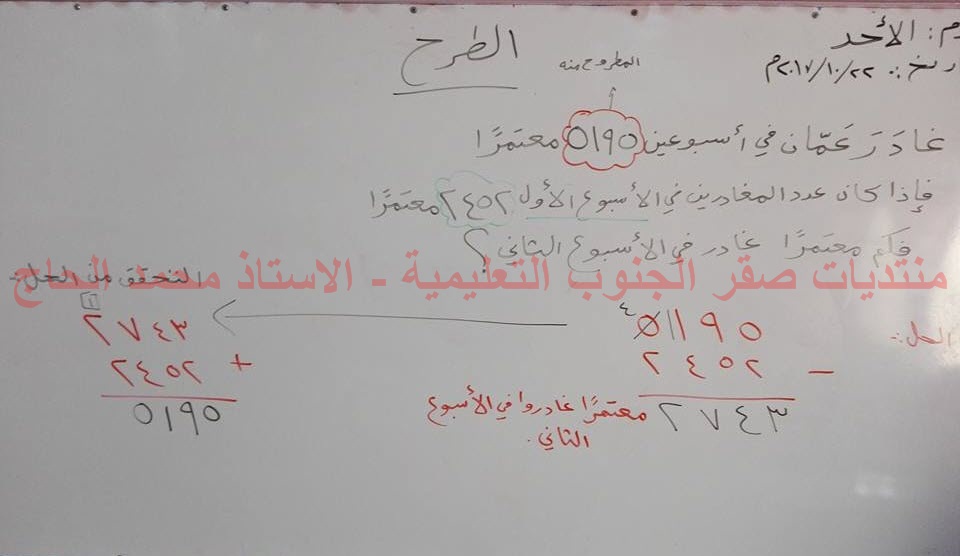 الطرح
م : الأحد
ريخ :. ٢٢/ ١٠/ ٢٠١٧م
المطروح منه
غادَرَ عَمّان في أسبوعين ٥١٩٥ معتمرًا
فإذا كان عدد المغادرين في الأسبوع الأول ٢٤٥٢ معتمرًا
فكم معتمرًا غادر في الأسبوع الثاني ؟
منتديات صقر الجنوب التعليمية - الاستاذ محمد الحاج
الحل :.
٤
٥١١٩٥
٢٤٥٢ -
٢٧٤٣ معتمرًا غادروا في الأسبوع
الثاني .
التحقق من الحل :-
١
٢٧٤٣
٢٤٥٢ +
٥١٩٥